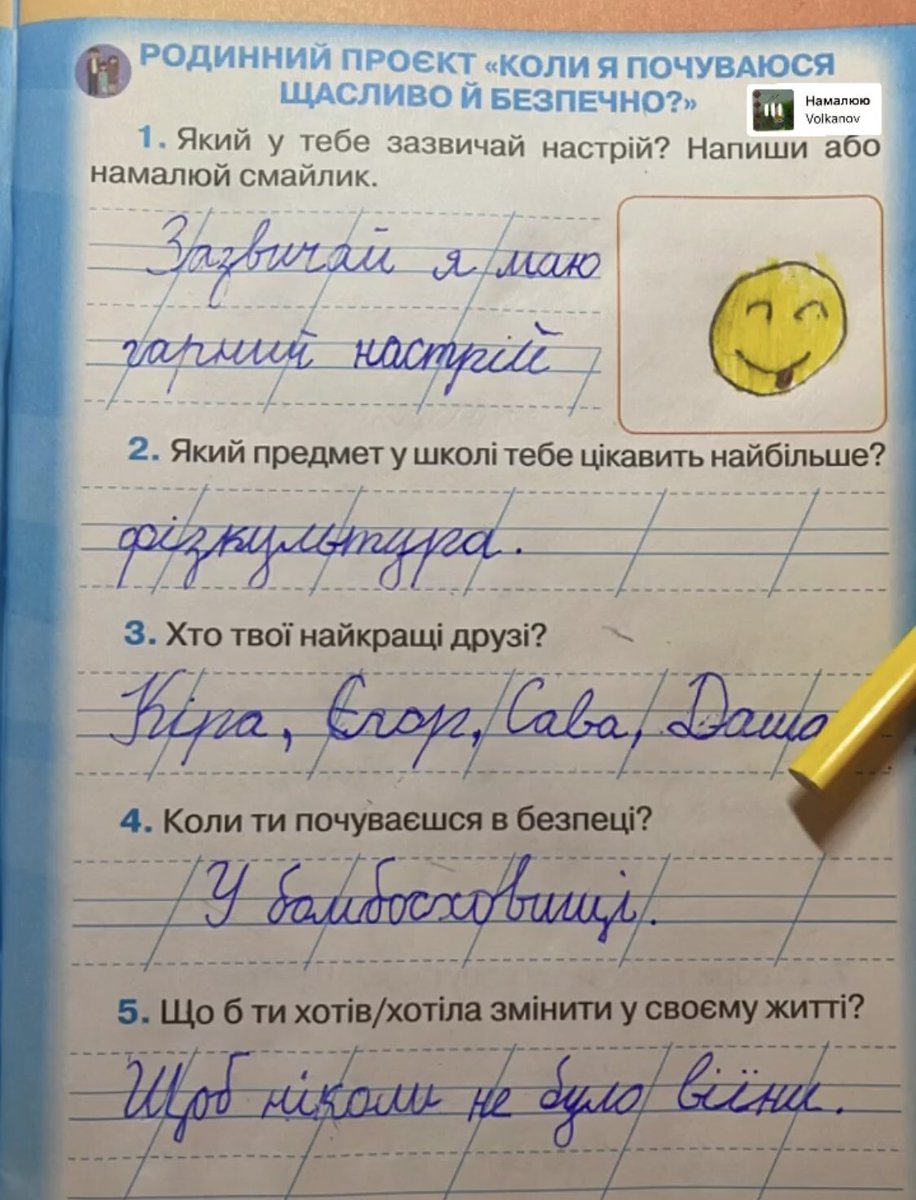 РОДИННИЙ ПРОЄКТ «КОЛИ Я ПОЧУВАЮСЯ
ЩАСЛИВО Й БЕЗПЕЧНО?»
Намалюю
Volkanov
1. Який у тебе зазвичай настрій? Напиши або
намалюй смайлик.
Зазвичай я маю
гарний настрій
2. Який предмет у школі тебе цікавить найбільше?
фізкультура.
3. Хто твої найкращі друзі?
Кіра, Єгор, Сава, Даша
4. Коли ти почуваєшся в безпеці?
У бомбосховищі.
5. Що б ти хотів/хотіла змінити у своєму житті?
Щоб ніколи не було віїни.